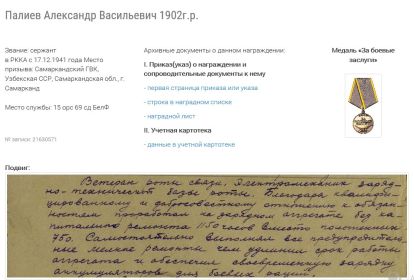 Палиев Александр Васильевич 1902г.р.
Звание: сержант
в РККА с 17.12.1941 года Место
призыва: Самаркандский ГВК,
Узбекская ССР, Самаркандская обл., г.
Самарканд
Место службы: 15 орс 69 сд БелФ
№ записи: 21630571
Архивные документы о данном награждении:
I. Приказ(указ) о награждении и
сопроводительные документы к нему
- первая страница приказа или указа
- строка в наградном списке
- наградной лист
II. Учетная картотека
- данные в учетной картотеке
Медаль «За боевые
заслуги»
Подвиг:
Ветеран роты связи, Электромеханик заряд-
но-технической базы роты. Благодаря квалифи-
цированному и добросовестному отношению к обязан-
ностям проработал на зарядном агрегате без ка-
питального ремонта 1150 часов вместо положенных
750. Самостоятельно выполнял все предупредитель-
ные мелкие ремонты, чем удлинил срок работы
агрегата и обеспечил своевременную зарядку
аккумуляторов для боевых раций